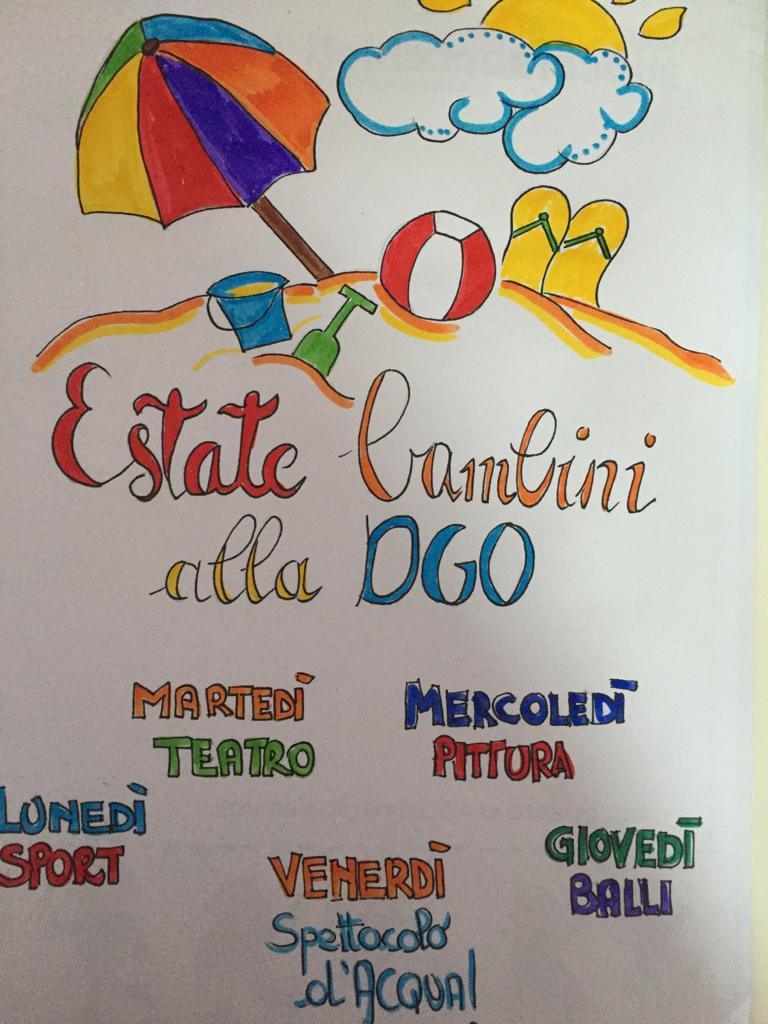 Estate bambini
alla DGO
MARTEDÌ
TEATRO
MERCOLEDÌ
PITTURA
LUNEDÌ
SPORT
GIOVEDÌ
BALLI
VENERDÌ
Spettacolo
d'ACQUA!